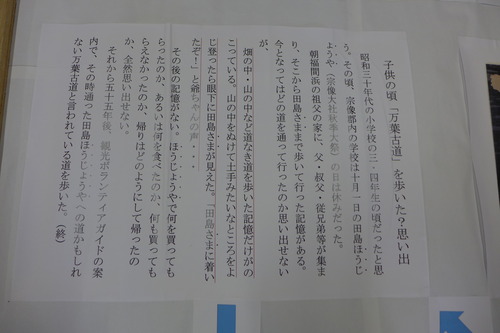 子供の頃「万葉古道」を歩いた？思い出
昭和三十年代の小学校の三・四年生の頃だったと思
う。その頃、宗像郡内の学校は十月一日の田島ほうじ
ようや（宗像大社秋季大祭）の日は休みだった。
朝福間浜の祖父の家に、父・叔父・従兄弟等が集ま
り、そこから田島さままで歩いて行った記憶がある。
今となってはどの道を通って行ったのか思い出せない
が、
畑の中・山の中など道なき道を歩いた記憶だけがの
こっている。山の中をぬけて土手みたいなところをよ
じ登ったら眼下に田島さまが見えた。「田島さまに着い
たぞ！」と爺ちゃんの声・・・
その後の記憶がない。ほうじょうやで何を買っても
らったのか、あるいは何を食べたのか、何も買っても
らえなかったのか、帰りはどのようにして帰ったの
か、全然思い出せない。
それから五十五年後、観光ボランティアガイドの案
内で、その時通った田島ほうじようやへの道かもしれ
ない万葉古道と言われている道を歩いた。（終）